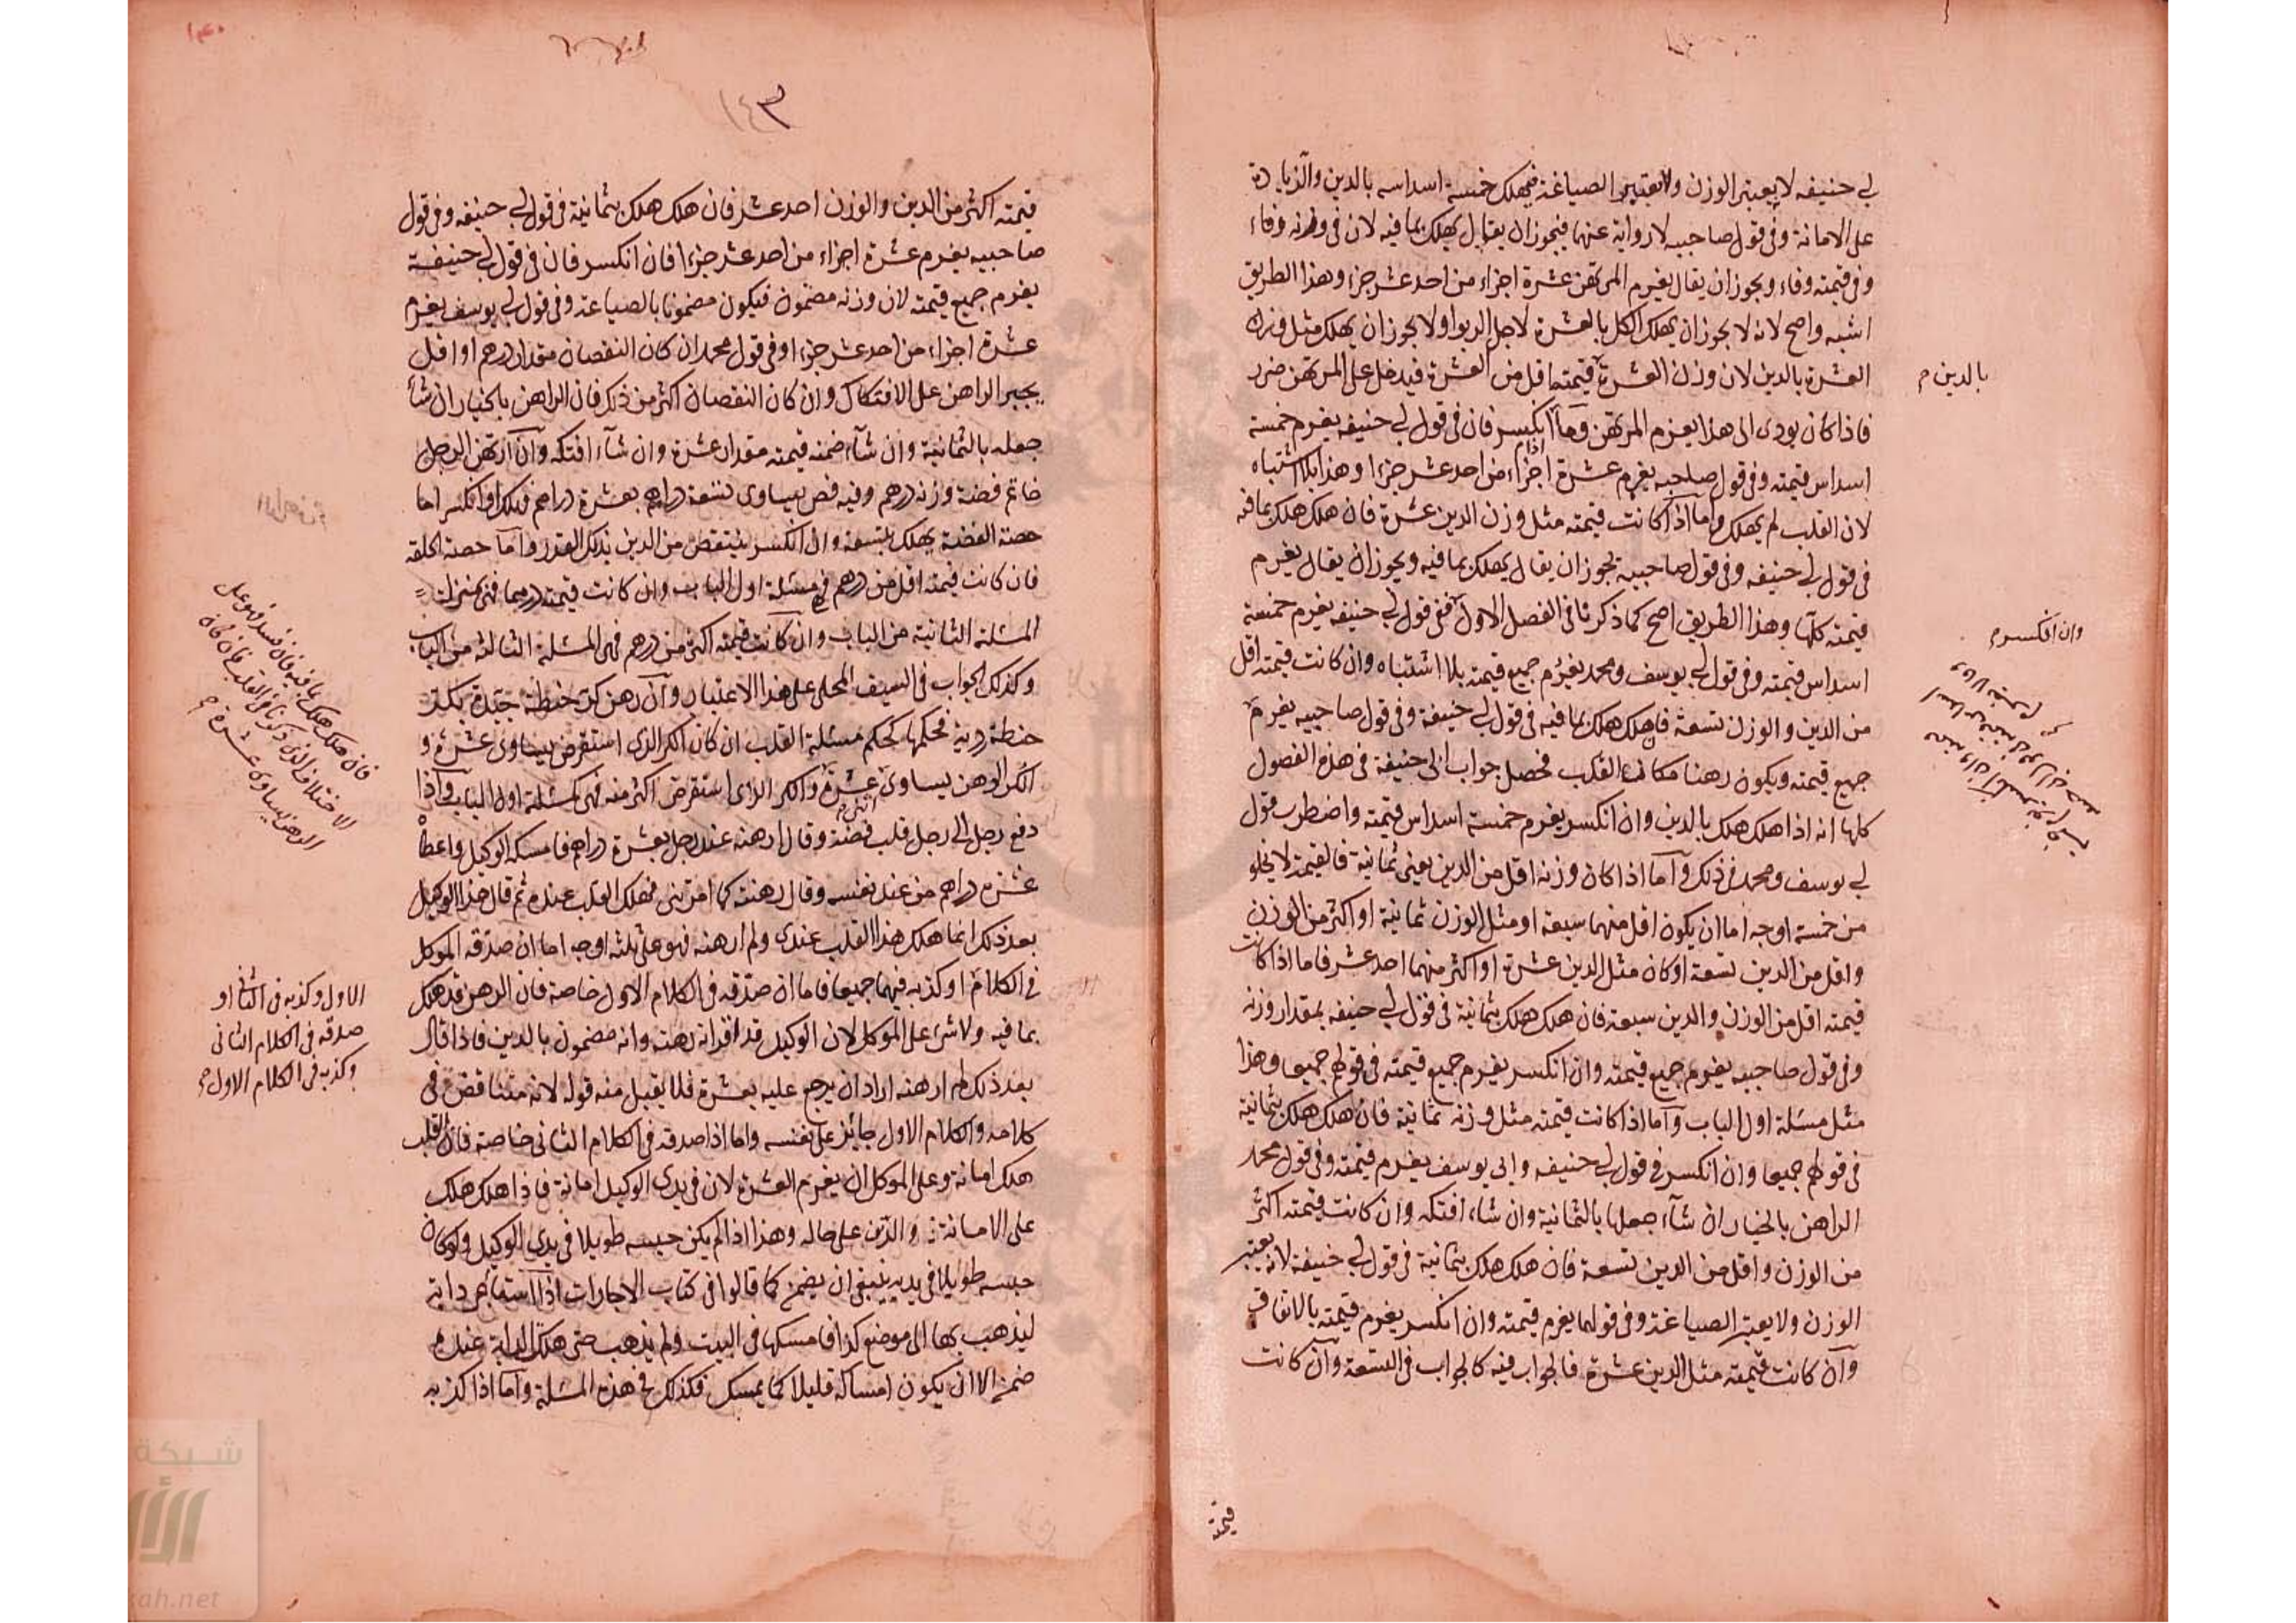 لي حنيفه لا يعتبر الوزن ولا يعتبر الصياغة فيهلك خمسة اسداسه بالدين والزيادة
على الامانة وفي قول صاحبيه لا رواية عنهما فيجوز ان يقال يهلك بما فيه لان في وزنه وفاء
وفي قيمته وفاء ويجوز ان يقال يغرم المرتهن عشرة اجزاء من احد عشر جزءا وهذا الطريق
اشبه واصح لانه لا يجوز ان يهلك الكل بالعشرة لاجل الربوا ولا يجوز ان يهلك مثل وزن
العشرة بالدين لان وزن العشرة قيمتها اقل من العشرة فيدخل على المرتهن ضرر
بالدين م
فاذا كان يودى الى هذا يغرم المرتهن واما اذا انكسر فان في قول لي حنيفه يغرم خمسة
اسداس قيمته وفي قول صاحبيه يغرم عشرة اجزاء من احد عشر جزءا وهذا بلا اشتباه
لان القلب لم يهلك واما اذا كانت قيمته مثل وزن الدين عشرة فان هلك هلك بما فيه
في قول لي حنيفه وفي قول صاحبيه يجوز ان يقال يهلك بما فيه ويجوز ان يقال يغرم
قيمته كلها وهذا الطريق اصح كما ذكرنا في الفصل الاول ففي قول لي حنيفه يغرم خمسة
وان انكسر م
اسداس قيمته وفي قول لي يوسف ومحمد يغرم جميع قيمته بلا اشتباه وان كانت قيمته اقل
من الدين والوزن تسعة فان هلك هلك بما فيه في قول لي حنيفة وفي قول صاحبيه يغرم
جميع قيمته ويكون رهنا مكان القلب فحصل جواب ابي حنيفة في هذه الفصول
كلها انه اذا هلك هلك بالدين وان انكسر يغرم خمسة اسداس قيمته واضطرب قول
لي يوسف ومحمد في ذلك واما اذا كان وزنه اقل من الدين يعنى ثمانية فالقيمة لا يخلو
من خمسة اوجه اما ان يكون اقل منهما سبعة او مثل الوزن ثمانية او اكثر من الوزن
واقل من الدين تسعة او كان مثل الدين عشرة او اكثر منهما احد عشر فاما اذا كانت
قيمته اقل من الوزن والدين سبعة فان هلك هلك بثمانية في قول لي حنيفه بمقدار وزنه
وفي قول صاحبيه يغرم جميع قيمته وان انكسر يغرم جميع قيمته في قولهم جميعا وهذا
مثل مسئلة اول الباب واما اذا كانت قيمته مثل وزنه ثمانية فان هلك هلك بثمانية
في قولهم جميعا وان انكسر في قول لي حنيفه وابى يوسف يغرم قيمته وفي قول محمد
الراهن بالخيار ان شاء جعلها بالثمانية وان شاء افتكه وان كانت قيمته اكثر
من الوزن واقل من الدين تسعة فان هلك هلك بثمانية في قول لي حنيفة لانه يعتبر
الوزن ولا يعتبر الصياغة وفي قولهما يغرم قيمته وان انكسر يغرم قيمته بالاتفاق
وان كانت قيمته مثل الدين عشرة فالجواب فيه كالجواب في التسعة وان كانت
قيمته
١٤٣
قيمته اكثر من الدين والوزن احد عشر فان هلك هلك بثمانية في قول لي حنيفه وفي قول
صاحبيه يغرم عشرة اجزاء من احد عشر جزءا فان انكسر فان في قول لي حنيفة
يغرم جميع قيمته لان وزنه مضمون فيكون مضمونا بالصياغة وفي قول لي يوسف يغرم
عشرة اجزاء من احد عشر جزءا وفي قول محمد ان كان النقصان مقدار درهم او اقل
يجبر الراهن على الافتكاك وان كان النقصان اكثر من ذلك فان الراهن بالخيار ان شاء
جعله بالثمانية وان شاء ضمنه قيمته مقدار عشرة وان شاء افتكه وان ارتهن الرجل
خاتم فضة وزنه درهم وفيه فص يساوى تسعة دراهم بعشرة دراهم فهلك او انكسر اما
حصة الفضة يهلك بتسعة وان انكسر ينتقص من الدين بذلك القدر واما حصة الحلقة
فان كانت قيمته اقل من درهم في مسئلة اول الباب وان كانت قيمته درهما فهى بمنزلة
المسئلة الثانية من الباب وان كانت قيمته اكثر من درهم فهى المسئلة الثالثة من الباب
وكذلك الجواب في السيف المحلى على هذا الاعتبار وان رهن كر حنطة جيدة بكر
حنطة ردية فحكمها كحكم مسئلة القلب ان كان الكر الذى استقرض يساوى عشرة و
الكر الرهن يساوى عشرة والكر الذى استقرض اكثر منه فهى كمسئلة اول الباب واذا
فان هلك هلك بما فيه فان فسد فهو على
الاختلاف الذى ذكرنا في القلب فان كان
الرهن يساوى عشرة م
دفع رجل الى رجل قلب فضة وقال ارهنه عند رجل بعشرة دراهم فامسكه الوكيل واعطاه
عشرة دراهم من عند نفسه وقال رهنته كما امرتنى فهلك القلب عنده ثم قال هذا الوكيل
بعد ذلك انما هلك هذا القلب عندى ولم ارهنه فهو على ثلثه اوجه اما ان صدقه الموكل
في الكلام او كذبه فيهما جميعا فاما ان صدقه في الكلام الاول خاصة فان الرهن قد هلك
الاول وكذبه في الثانى او
صدقه في الكلام الثانى
وكذبه في الكلام الاول م
بما فيه ولا شئ على الموكل لان الوكيل قد اقر انه رهنه وانه مضمون بالدين فاذا قال
بعد ذلك لم ارهنه اراد ان يرجع عليه بعشرة فلا يقبل منه قوله لانه متناقض في
كلامه والكلام الاول جائز على نفسه واما اذا صدقه في الكلام الثانى خاصة فان القلب
هلك امانة وعلى الموكل ان يغرم العشرة لان في يدى الوكيل امانة فاذا هلك هلك
على الامانة والدين على حاله وهذا اذا لم يكن حبسه طويلا في يدى الوكيل ولو كان
حبسه طويلا في يديه ينبغي ان يضمن كما قالوا في كتاب الاجارات اذا استأجر دابة
ليذهب بها الى موضع كذا فامسكها في البيت ولم يذهب حتى هلك الدابة عنده
ضمن الا ان يكون امساكه قليلا كما يمسك فكذلك في هذه المسئلة واما اذا كذبه